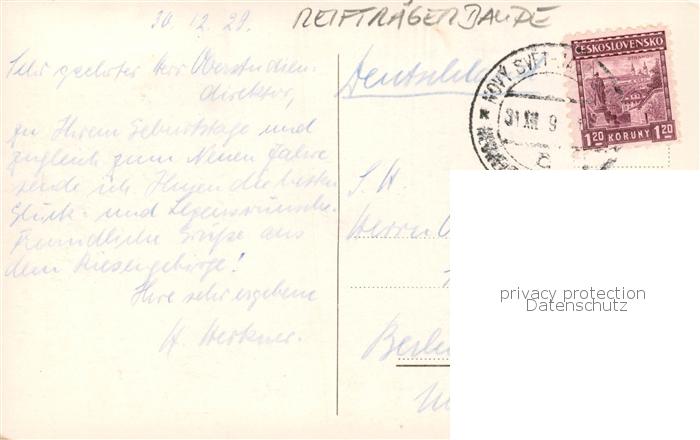 30.12.29.
REIFTRÄGERBAUDE
Sehr geehrter Herr Oberstudien-
direktor,
zu Ihrem Geburtstage und
zugleich zum Neuen Jahre
sende ich Ihnen die besten
Glück- und Segenswünsche.
Freundliche Grüße aus
dem Riesengebirge!
Ihre sehr ergebene
H. Werkner.
Deutschland
ČESKOSLOVENSKO
1.20 KORUNY 1.20
NOVÝ SVĚT
31.XII.9
S. H.
Herrn O
Berlin
privacy protection
Datenschutz